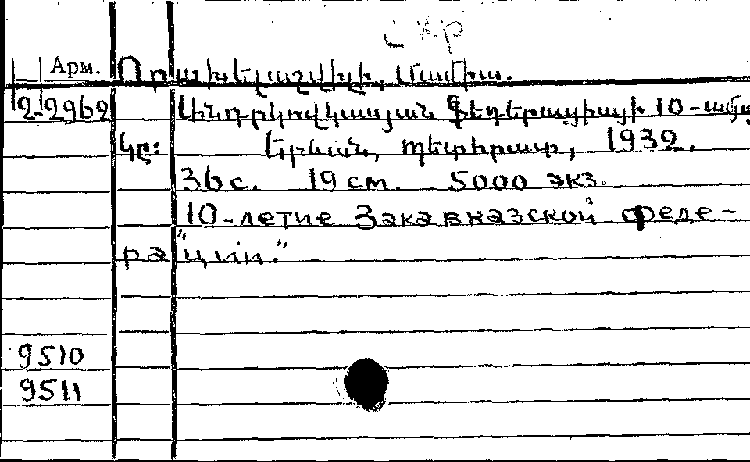 Арм.
Օրախելաշվիլի, Մամիա.
2-2962 Անդրկովկասյան Ֆեդերացիայի 10-ամյա
կը։ Երևան, Պետհրատ, 1932.
36 с. 19 см. 5000 экз.
10-летие Закавказской феде-
ра"ции."
9510
9511